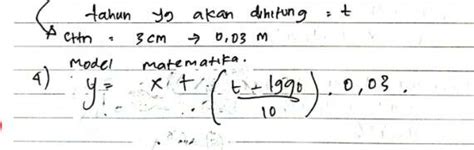 tahun yg akan dihitung = t
CHn = 3 cm → 0,03 m
Model matematika.
4) y = x + (t - 1990 / 10) . 0,03 .